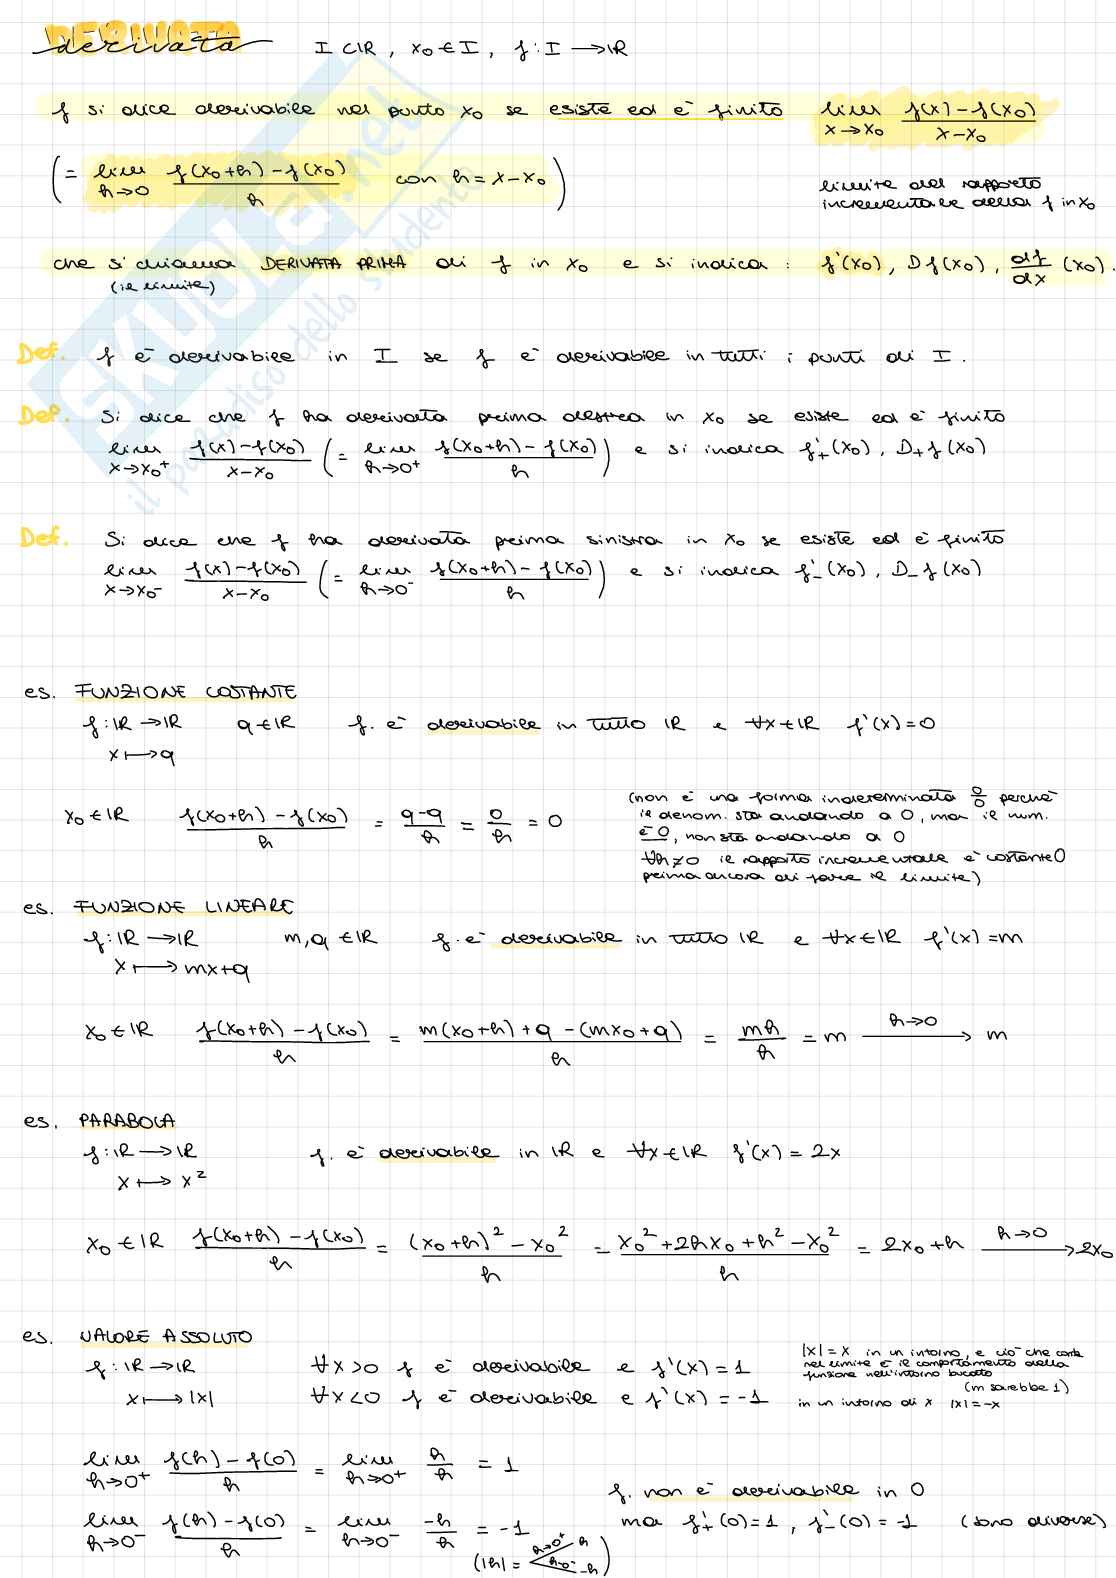 DERIVATA
derivata I ⊂ IR, x₀ ∈ I, f: I → IR
f si dice derivabile nel punto x₀ se esiste ed è finito lim x→x₀ (f(x)-f(x₀))/(x-x₀)
(= lim h→0 (f(x₀+h)-f(x₀))/h con h = x-x₀)
limite del rapporto
incrementale della f in x₀
che si chiama DERIVATA PRIMA di f in x₀ e si indica: f'(x₀), Df(x₀), df/dx (x₀).
(il limite)
Def. f è derivabile in I se f è derivabile in tutti i punti di I.
Def. Si dice che f ha derivata prima destra in x₀ se esiste ed è finito
lim x→x₀⁺ (f(x)-f(x₀))/(x-x₀) (= lim h→0⁺ (f(x₀+h)-f(x₀))/h) e si indica f'₊(x₀), D₊f(x₀)
Def. Si dice che f ha derivata prima sinistra in x₀ se esiste ed è finito
lim x→x₀⁻ (f(x)-f(x₀))/(x-x₀) (= lim h→0⁻ (f(x₀+h)-f(x₀))/h) e si indica f'₋(x₀), D₋f(x₀)
es. FUNZIONE COSTANTE
f: IR → IR q ∈ IR f. è derivabile in tutto IR e ∀x ∈ IR f'(x)=0
x ↦ q
x₀ ∈ IR (f(x₀+h)-f(x₀))/h = (q-q)/h = 0/h = 0
(non è una forma indeterminata 0/0 perché
il denom. sta andando a 0, ma il num.
è 0, non sta andando a 0
∀h≠0 il rapporto incrementale è costante 0
prima ancora di fare il limite)
es. FUNZIONE LINEARE
f: IR → IR m,q ∈ IR f. è derivabile in tutto IR e ∀x∈IR f'(x)=m
x ↦ mx+q
x₀ ∈ IR (f(x₀+h)-f(x₀))/h = (m(x₀+h)+q-(mx₀+q))/h = mh/h = m h→0 → m
es. PARABOLA
f: IR → IR f. è derivabile in IR e ∀x∈IR f'(x) = 2x
x ↦ x²
x₀ ∈ IR (f(x₀+h)-f(x₀))/h = ((x₀+h)²-x₀²)/h = (x₀²+2hx₀+h²-x₀²)/h = 2x₀+h h→0 → 2x₀
es. VALORE ASSOLUTO
f: IR → IR ∀x>0 f è derivabile e f'(x)=1
|x|=x in un intorno, e ciò che conta
nel limite è il comportamento della
funzione nell'intorno bucato
(m sarebbe 1)
x ↦ |x| ∀x<0 f è derivabile e f'(x) = -1 in un intorno di x |x|=-x
lim h→0⁺ (f(h)-f(0))/h = lim h→0⁺ h/h = 1
lim h→0⁻ (f(h)-f(0))/h = lim h→0⁻ -h/h = -1
(|h| = < h→0⁺ h h→0⁻ -h)
f. non è derivabile in 0
ma f'₊(0)=1, f'₋(0)=-1 (sono diverse)
SKUOLA.net
il paradiso dello studente